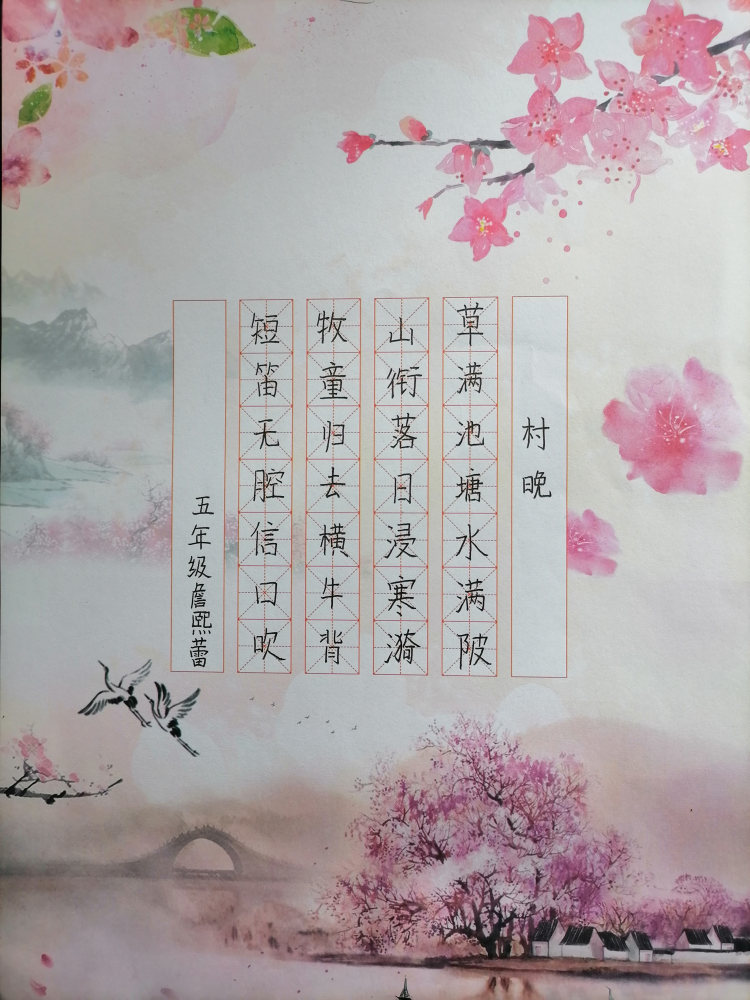 村晚
草满池塘水满陂
山衔落日浸寒漪
牧童归去横牛背
短笛无腔信口吹
五年级詹熙蕾